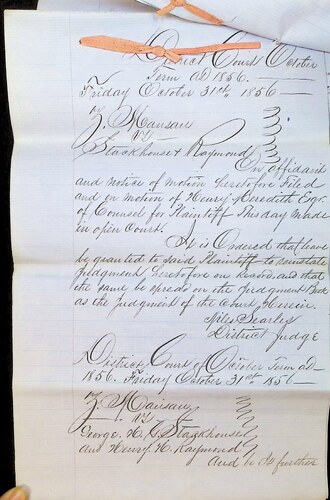 District Court October
Term AD 1856.
Friday October 31st 1856
Z. Mansau
vs
Stackhouse & Raymond
On affidavit
and notice of Motion heretofore Filed
and on motion of Henry Meredith Esqr
of Counsel for Plaintiff This day Made
in open Court.
It is Ordered that leave
be granted to said Plaintiff to reinstate
Judgment heretofore on Record, and that
the same be spread on the Judgment Book
as the Judgment of the Court Herein.
Niles Searls
District Judge
District Court of October Term AD
1856. Friday October 31st 1856
Z. Mansau
vs
George. H. G. Stackhouse
and Henry. H. Raymond
And be it further